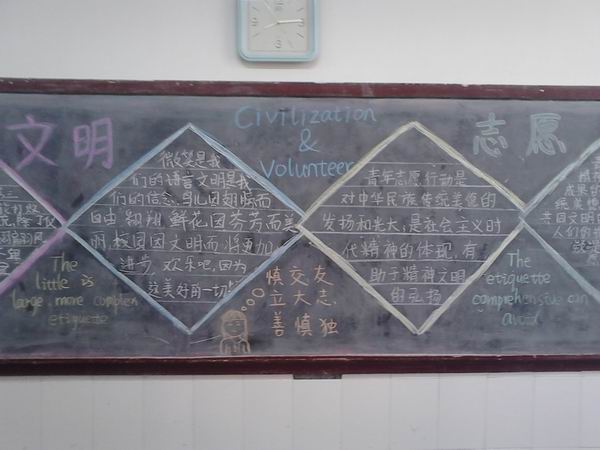 文明
Civilization
&
Volunteer
志愿
微笑是我
们的语言文明是我
们的信念,鸟儿因翱翔而
自由翱翔,鲜花因芬芳而美
丽,校园因文明而将更加
进步,欢乐吧,因为
这美好的一切!
青年志愿行动是
对中华民族传统美德的
发扬和光大,是社会主义时
代精神的体现,有
助于精神文明
的弘扬
The
little is
large, more complex
etiquette
慎交友
立大志
善慎独
The
etiquette
comprehensive can
avoid